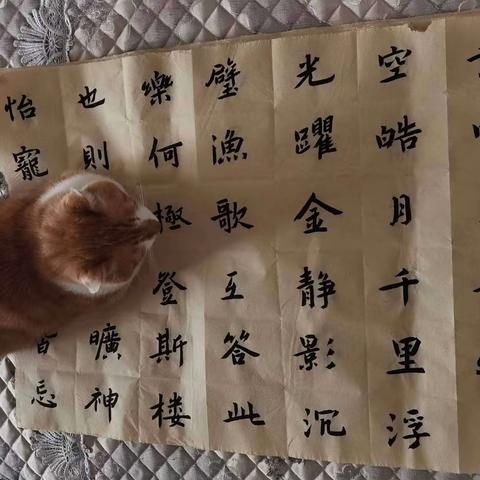 空皓月千里浮
光躍金靜影沉
璧漁歌互答此
樂何極登斯楼
也則曠神
怡寵忘